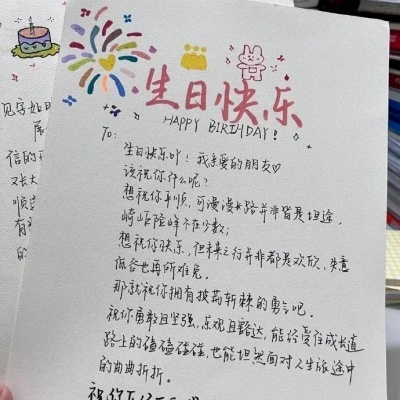 生日快乐
HAPPY BIRTHDAY!
To:
生日快乐吖！我亲爱的朋友♡
该祝你什么呢？
想祝你平顺，可漫漫长路并非皆是坦途，
崎岖险峰不在少数；
想祝你快乐，但未来之行并非都是欢欣，失意
低谷也再所难免。
那就祝你拥有披荆斩棘的勇气吧。
祝你勇敢且坚强，乐观且豁达，能经受住成长道
路上的磕磕碰碰，也能坦然面对人生旅途中
的曲曲折折。
见字如
展
信的
又长大
顺
有
的